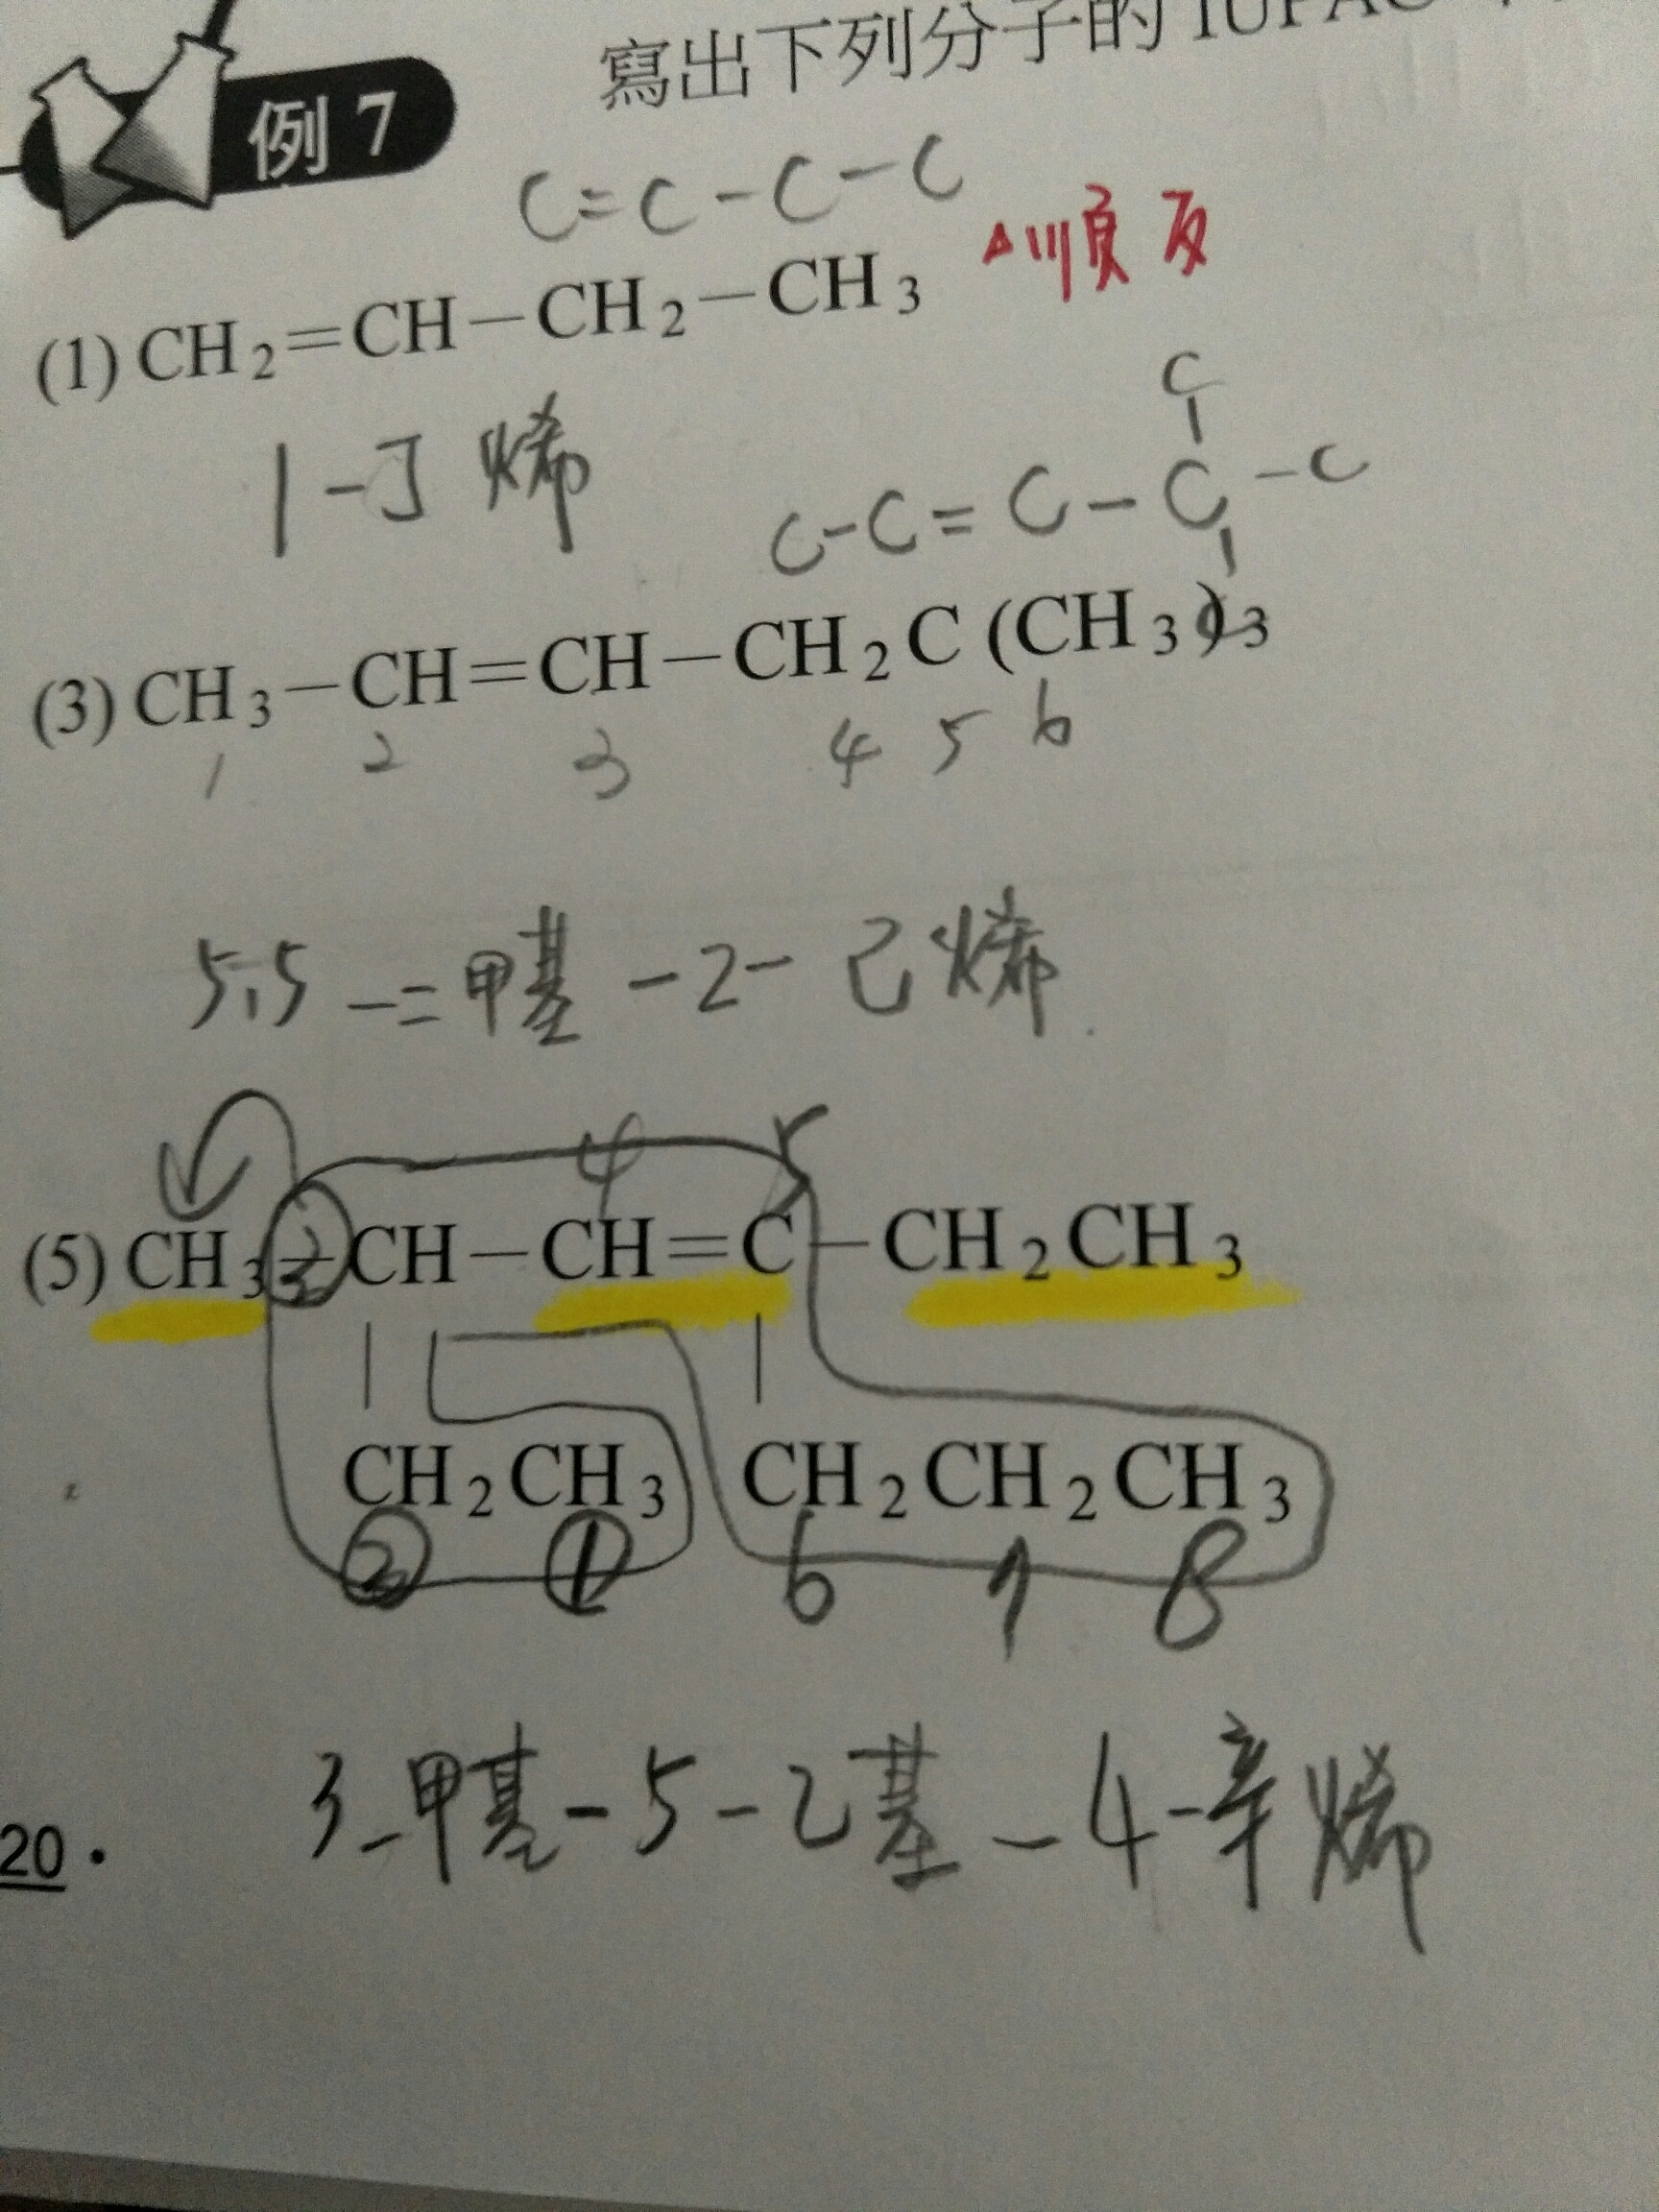 例 7
寫出下列分子的 IUPAC
C=C-C-C
△順反
(1) CH₂=CH-CH₂-CH₃
1-丁烯
C
C-C=C-C-C
(3) CH₃-CH=CH-CH₂C(CH₃)₃
1 2 3 4 5 6
5,5-二甲基-2-己烯
4 5
(5) CH₃-CH-CH=C-CH₂CH₃
3
CH₂CH₃ CH₂CH₂CH₃
2 1 6 7 8
3-甲基-5-乙基-4-辛烯
20.